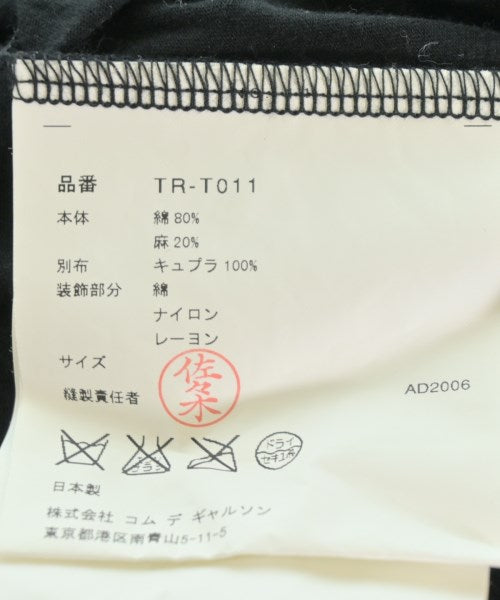 品番 TR-T011
本体 綿 80%
麻 20%
別布 キュプラ 100%
装飾部分 綿
ナイロン
レーヨン
サイズ
縫製責任者 佐々木
AD2006
ドライ
セキユ系
日本製
株式会社 コム デ ギャルソン
東京都港区南青山5-11-5